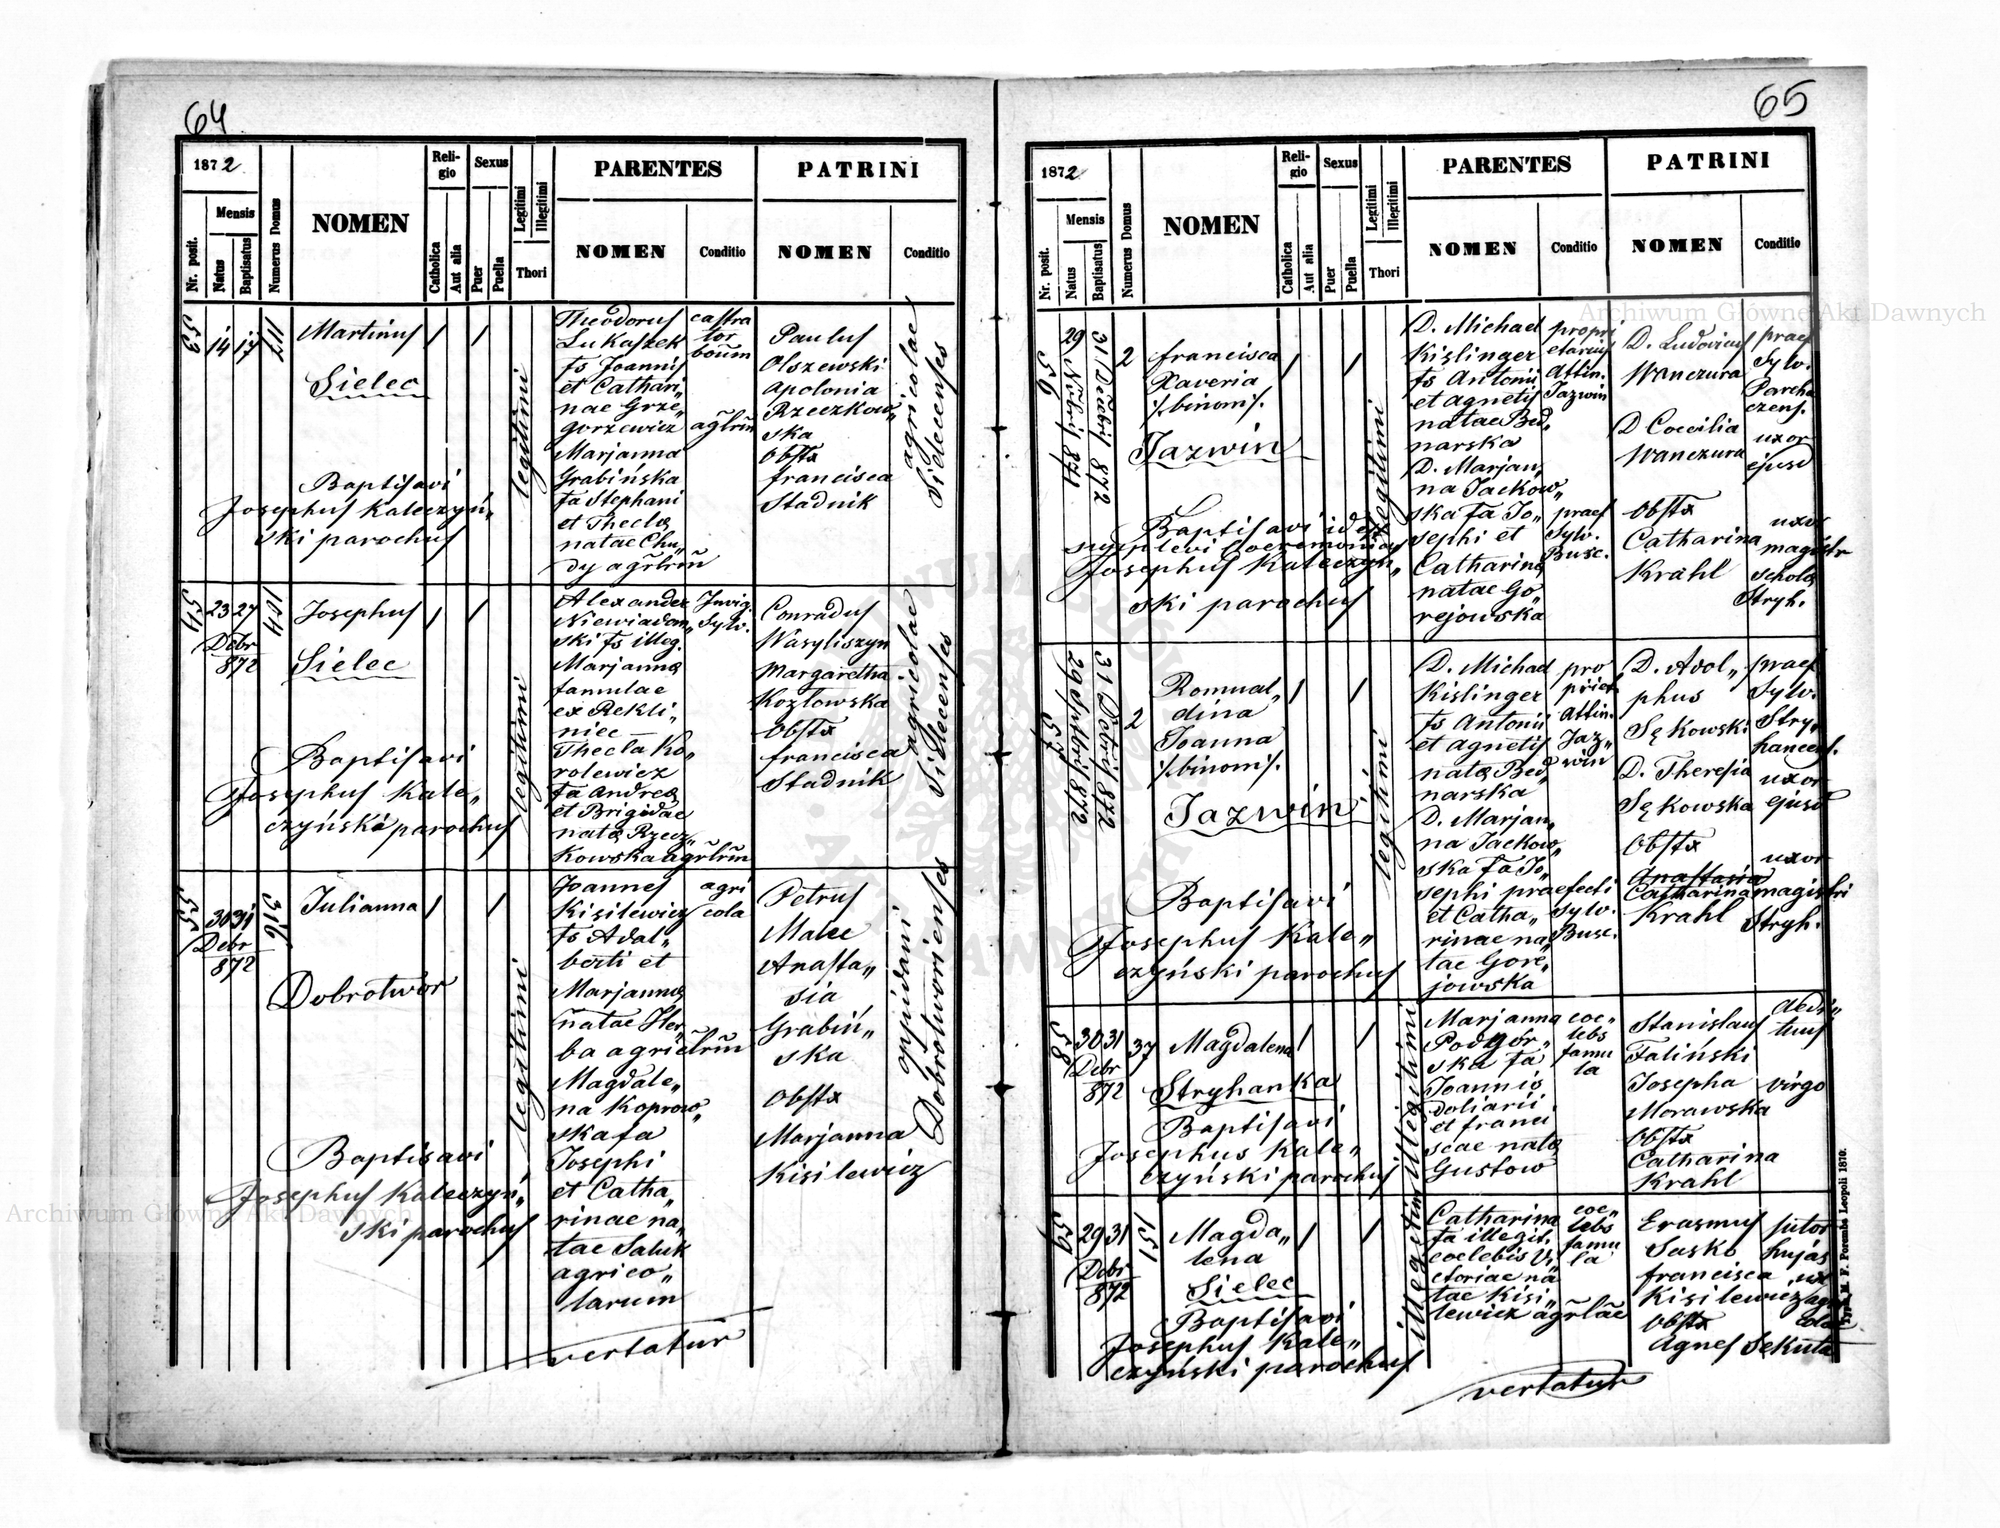 64
1872
Religio
Sexus
PARENTES
PATRINI
Mensis
NOMEN
Nr. posit.
Natus
Baptisatus
Numerus Domus
Catholica
Aut alia
Puer
Puella
Legitimi
Illegitimi
Thori
NOMEN
Conditio
NOMEN
Conditio
53
14 17
117
Martinus
Sielec
Baptisavi
Josephus Kaleczyń„
ski parochus
legitimi
Theodorus
Lukaszek
fs Joannis
et Cathari„
nae Grze„
gorzewicz
Marjanna
Grabińska
fa Stephani
et Thecla
natae Chu„
dy agrlrum
castra
tor
boum
agrlrum
Paulus
Olszewski
Apolonia
Rzeczkow„
ska
Obstx
francisca
Stadnik
agricolae
Sielecenses
54
23 27
Debr
872
104
Josephus
Sielec
Baptisavi
Josephus Kale„
czyński parochus
legitimi
Alexander
Niewiadom„
ski fs illeg.
Marjanna
famulae
ex Rekli„
niec
Thecla Ko„
rolewicz
fa Andrea
et Brigidae
nata Rzecz„
Kowska agrlrum
Invig.
Sylv.
Conradus
Wasyliszyn
Margaretha
Kozłowska
Obstx
francisca
Stadnik
agricolae
Sielecenses
55
30 31
Debr
872
316
Julianna
Dobrotwór
Baptisavi
Josephus Kaleczyń„
ski parochus
legitimi
Joannes
Kisilewicz
fs Adal„
berti et
Marjanna
natae Her„
ba agricolrum
Magdale„
na Koprow„
ska fa
Josephi
et Catha„
rinae na„
tae Saluk
agrico„
larum
agri
cola
Petrus
Malec
Anasta„
sia
Grabiń„
ska
Obstx
Marjanna
Kisilewicz
opidani
Dobrotworienses
vertatur
65
1872
Religio
Sexus
PARENTES
PATRINI
Mensis
NOMEN
Nr. posit.
Natus
Baptisatus
Numerus Domus
Catholica
Aut alia
Puer
Puella
Legitimi
Illegitimi
Thori
NOMEN
Conditio
NOMEN
Conditio
56
29 871
31 Debri 872
2
francisca
Xaveria
/:binom:/.
Jazwin
Baptisavi idest
supplevi Coeremonias
Josephus Kaleczyń„
ski parochus
legitimi
D. Michael
Kislinger
fs Antonii
et Agnetis
natae Bed„
narska
D. Marjan„
na Jackow„
ska fa Jo„
sephi et
Catharina
natae Go„
rejowska
propri
etarius
Attin.
Jazwin
praef
Sylv.
Busc.
D. Ludovicus
Wanczura
D Coecilia
Wanczura
Obstx
Catharina
Krahl
praef
Sylv.
Parcha
czens.
uxor
ejusd
uxor
magistr
schola
Stryh.
57
872
31 Debri 872
2
Romual„
dina
Joanna
/:binom:/.
Jazwin
Baptisavi
Josephus Kale„
czyński parochus
legitimi
D. Michael
Kislinger
fs Antonii
et Agnetis
nata Bed
narska
D. Marjan„
na Jackow„
ska fa Jo„
sephi praefecti
et Catha„
rinae na„
tae Gore„
jowska
pro
priet
Attin.
Jaz„
win
Sylv.
Busc.
D. Adol„
phus
Sękowski
D. Theresia
Sękowska
Obstx
Anastasia
Catharina
Krahl
praef
Sylv.
Stry„
hancens.
uxor
ejusd
uxor
magistri
Stryh.
58
30 31
Debr
872
37
Magdalena
Stryhanka
Baptisavi
Josephus Kale„
czyński parochus
illegitimi
Marjanna
Podgór„
ska fa
Joannis
doliarii
et franci
scae nata
Gustow
coe„
lebs
famu
la
Stanislaus
Faliński
Josepha
Morawska
Obstx
Catharina
Krahl
aedi„
tuus
virgo
59
29 31
Debr
872
151
Magda„
lena
Sielec
Baptisavi
Josephus Kale„
czyński parochus
illegitimi
Catharina
fa illegit.
coelebis Vi„
ctoriae na
tae Kisi„
lewicz agrlae
coe„
lebs
famu
la
Erasmus
Sasko
francisca
Kisilewicz
Obstx
Agnes Sekuta
sutor
hujas
ux
agri
cola
vertatur
Typ. M. F. Poremba Leopoli 1870.
Archiwum Główne Akt Dawnych
Archiwum Główne Akt Dawnych